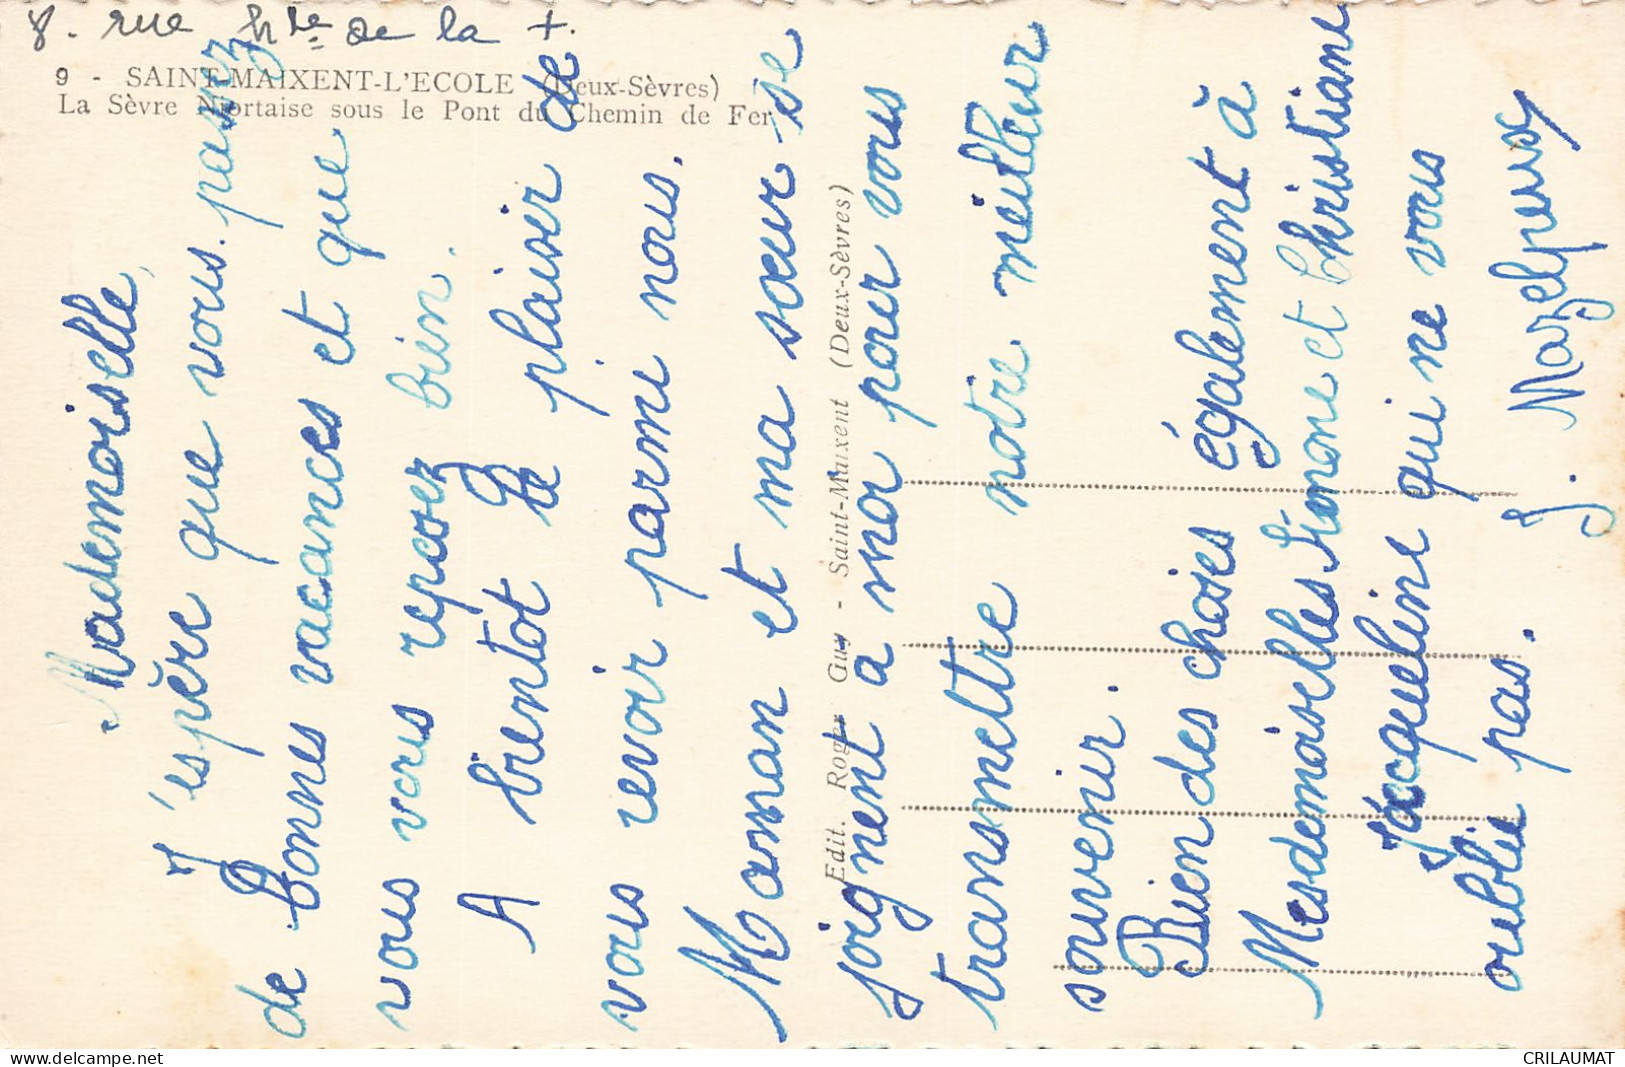 8. rue hte de la +.
9 - SAINT-MAIXENT-L'ECOLE (Deux-Sèvres)
La Sèvre Niortaise sous le Pont du Chemin de Fer
Edit. Roger Guy - Saint-Maixent (Deux-Sèvres)
Mademoiselle,
J'espère que vous passez
de bonnes vacances et que
vous vous reposez bien.
A bientôt le plaisir de
vous revoir parmi nous.
Maman et ma sœur se
joignent à moi pour vous
transmettre notre meilleur
souvenir.
Bien des choses également à
Mesdemoiselles Simone et Christiane
Jacqueline qui ne vous
oublie pas.
J. Mazelpeux
CRILAUMAT